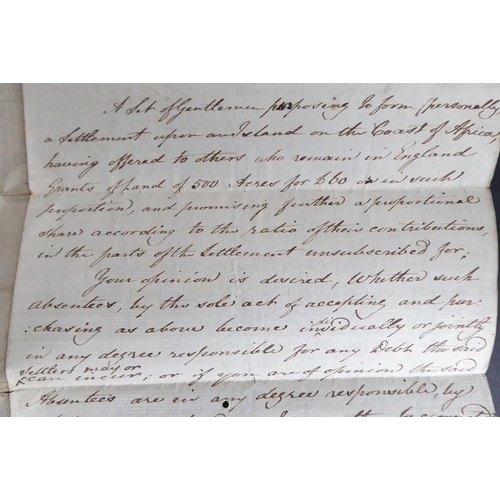 A Set of Gentlemen purposing to form (personally
a Settlement upon an Island on the Coast of Africa,
having offered to others who remain in England
Grants of Land of 500 Acres for £60 or in such
proportion, and promising further a proportional
share according to the ratio of their contributions,
in the parts of the Settlement unsubscribed for,
Your opinion is desired, Whether such
absentees, by the sole act of accepting and pur:
:chasing as above become individually or jointly
in any degree responsible for any Debt the said
Settlers may or
can incur; or if you are of opinion the said
Absentees are in any degree responsible, by